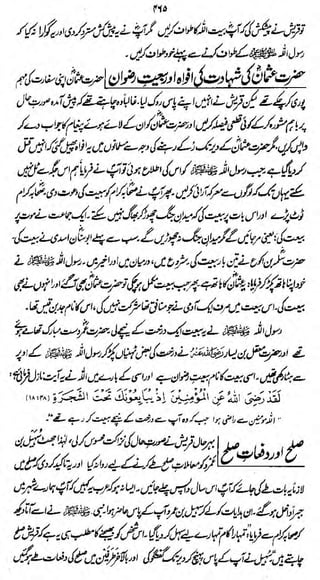 ۴۶۵
تو قریش نے پیشکش کی کہ آپ بیت اللہ کا طواف کر لیں۔ مگر آپ نے یہ پیش کش مسترد کر دی اور یہ گوارا نہ کیا کہ
رسول اللہ ﷺ کے طواف کرنے سے پہلے خود طواف کر لیں۔
حضرت عثمانؓ کی شہادت کی افواہ اور بیعتِ رضوان
حضرت عثمانؓ اپنی سفارت کی مہم
پوری کر چکے تھے لیکن قریش نے انہیں اپنے پاس روک لیا۔ غالباً وہ چاہتے تھے کہ پیش آمدہ صورتِ حال
پر باہم مشورہ کر کے کوئی قطعی فیصلہ کر لیں اور حضرت عثمانؓ کو ان کے لائے ہوئے پیغام کا جواب دے کر
واپس کریں، مگر حضرت عثمانؓ کے دیر تک رکے رہنے کی وجہ سے مسلمانوں میں یہ افواہ پھیل گئی کہ انہیں قتل
کر دیا گیا ہے۔ جب رسول اللہ ﷺ کو اس کی اطلاع ہوئی تو آپ نے فرمایا ہم اس جگہ سے ٹل نہیں
سکتے یہاں تک کہ لوگوں سے معرکہ آرائی کر لیں۔ پھر آپ نے صحابہ کرام کو بیعت کی دعوت دی، صحابہ کرام
ٹوٹ پڑے اور اس بات پر بیعت کی کہ میدانِ جنگ چھوڑ کر بھاگ نہیں سکتے۔ ایک جماعت نے موت پر
بیعت کی؛ یعنی مر جائیں گے مگر میدانِ جنگ نہ چھوڑیں گے۔ سب سے پہلے ابو سنان اسدی نے بیعت کی۔
حضرت سلمہ بن اکوع نے تین بار بیعت کی، شروع میں، درمیان میں اور اخیر میں۔ رسول اللہ ﷺ
نے خود اپنا ہاتھ پکڑ کر فرمایا: یہ عثمان کا ہاتھ ہے۔ پھر جب بیعت مکمل ہو چکی تو حضرت عثمانؓ بھی آ گئے اور انہوں
نے بھی بیعت کی۔ اس بیعت میں صرف ایک آدمی نے جو منافق تھا شرکت نہیں کی، اس کا نام جد بن قیس تھا۔
رسول اللہ ﷺ نے یہ بیعت ایک درخت کے نیچے لی۔ حضرت عمرؓ دست مبارک تھامے ہوئے
تھے اور حضرت معقل بن یسار رضی اللہ عنہ نے درخت کی بعض ٹہنیاں پکڑ کر رسول اللہ ﷺ کے اوپر
سے ہٹا رکھی تھیں۔ اسی بیعت کا نام بیعتِ رضوان ہے اور اسی کے بارے میں اللہ نے یہ آیت نازل فرمائی ہے:
لَقَدْ رَضِيَ اللّٰهُ عَنِ الْمُؤْمِنِيْنَ اِذْ يُبَايِعُوْنَكَ تَحْتَ الشَّجَرَةِ (۱۸:۴۸)
”اللہ مومنین سے راضی ہوا جب کہ وہ آپ سے درخت کے نیچے بیعت کر رہے تھے“۔
صلح اور دفعاتِ صلح
بہرحال قریش نے صورتِ حال کی نزاکت محسوس کر لی، لہٰذا جھٹ سُہَیل بن
عَمرو کو معاملاتِ صلح طے کرنے کے لیے روانہ کیا اور یہ تاکید کر دی کہ صلح میں
لازماً یہ بات طے کی جائے کہ آپ اس سال واپس چلے جائیں۔ ایسا نہ ہو کہ عرب یہ کہیں کہ آپ ہمارے شہر میں
جبراً داخل ہو گئے۔ ان ہدایات کو لے کر سہیل بن عمرو آپ کے پاس حاضر ہوا۔ نبی ﷺ نے اسے آتا دیکھ
کر صحابہ کرام سے فرمایا: ”تمہارا کام تمہارے لیے سہل کر دیا گیا۔ اس شخص کو بھیجنے کا مطلب ہی یہ ہے کہ قریش صلح
چاہتے ہیں“، سُہیل نے آپ کے پاس پہنچ کر دیر تک گفتگو کی اور بالآخر طرفین میں صلح کی دفعات طے ہو گئیں